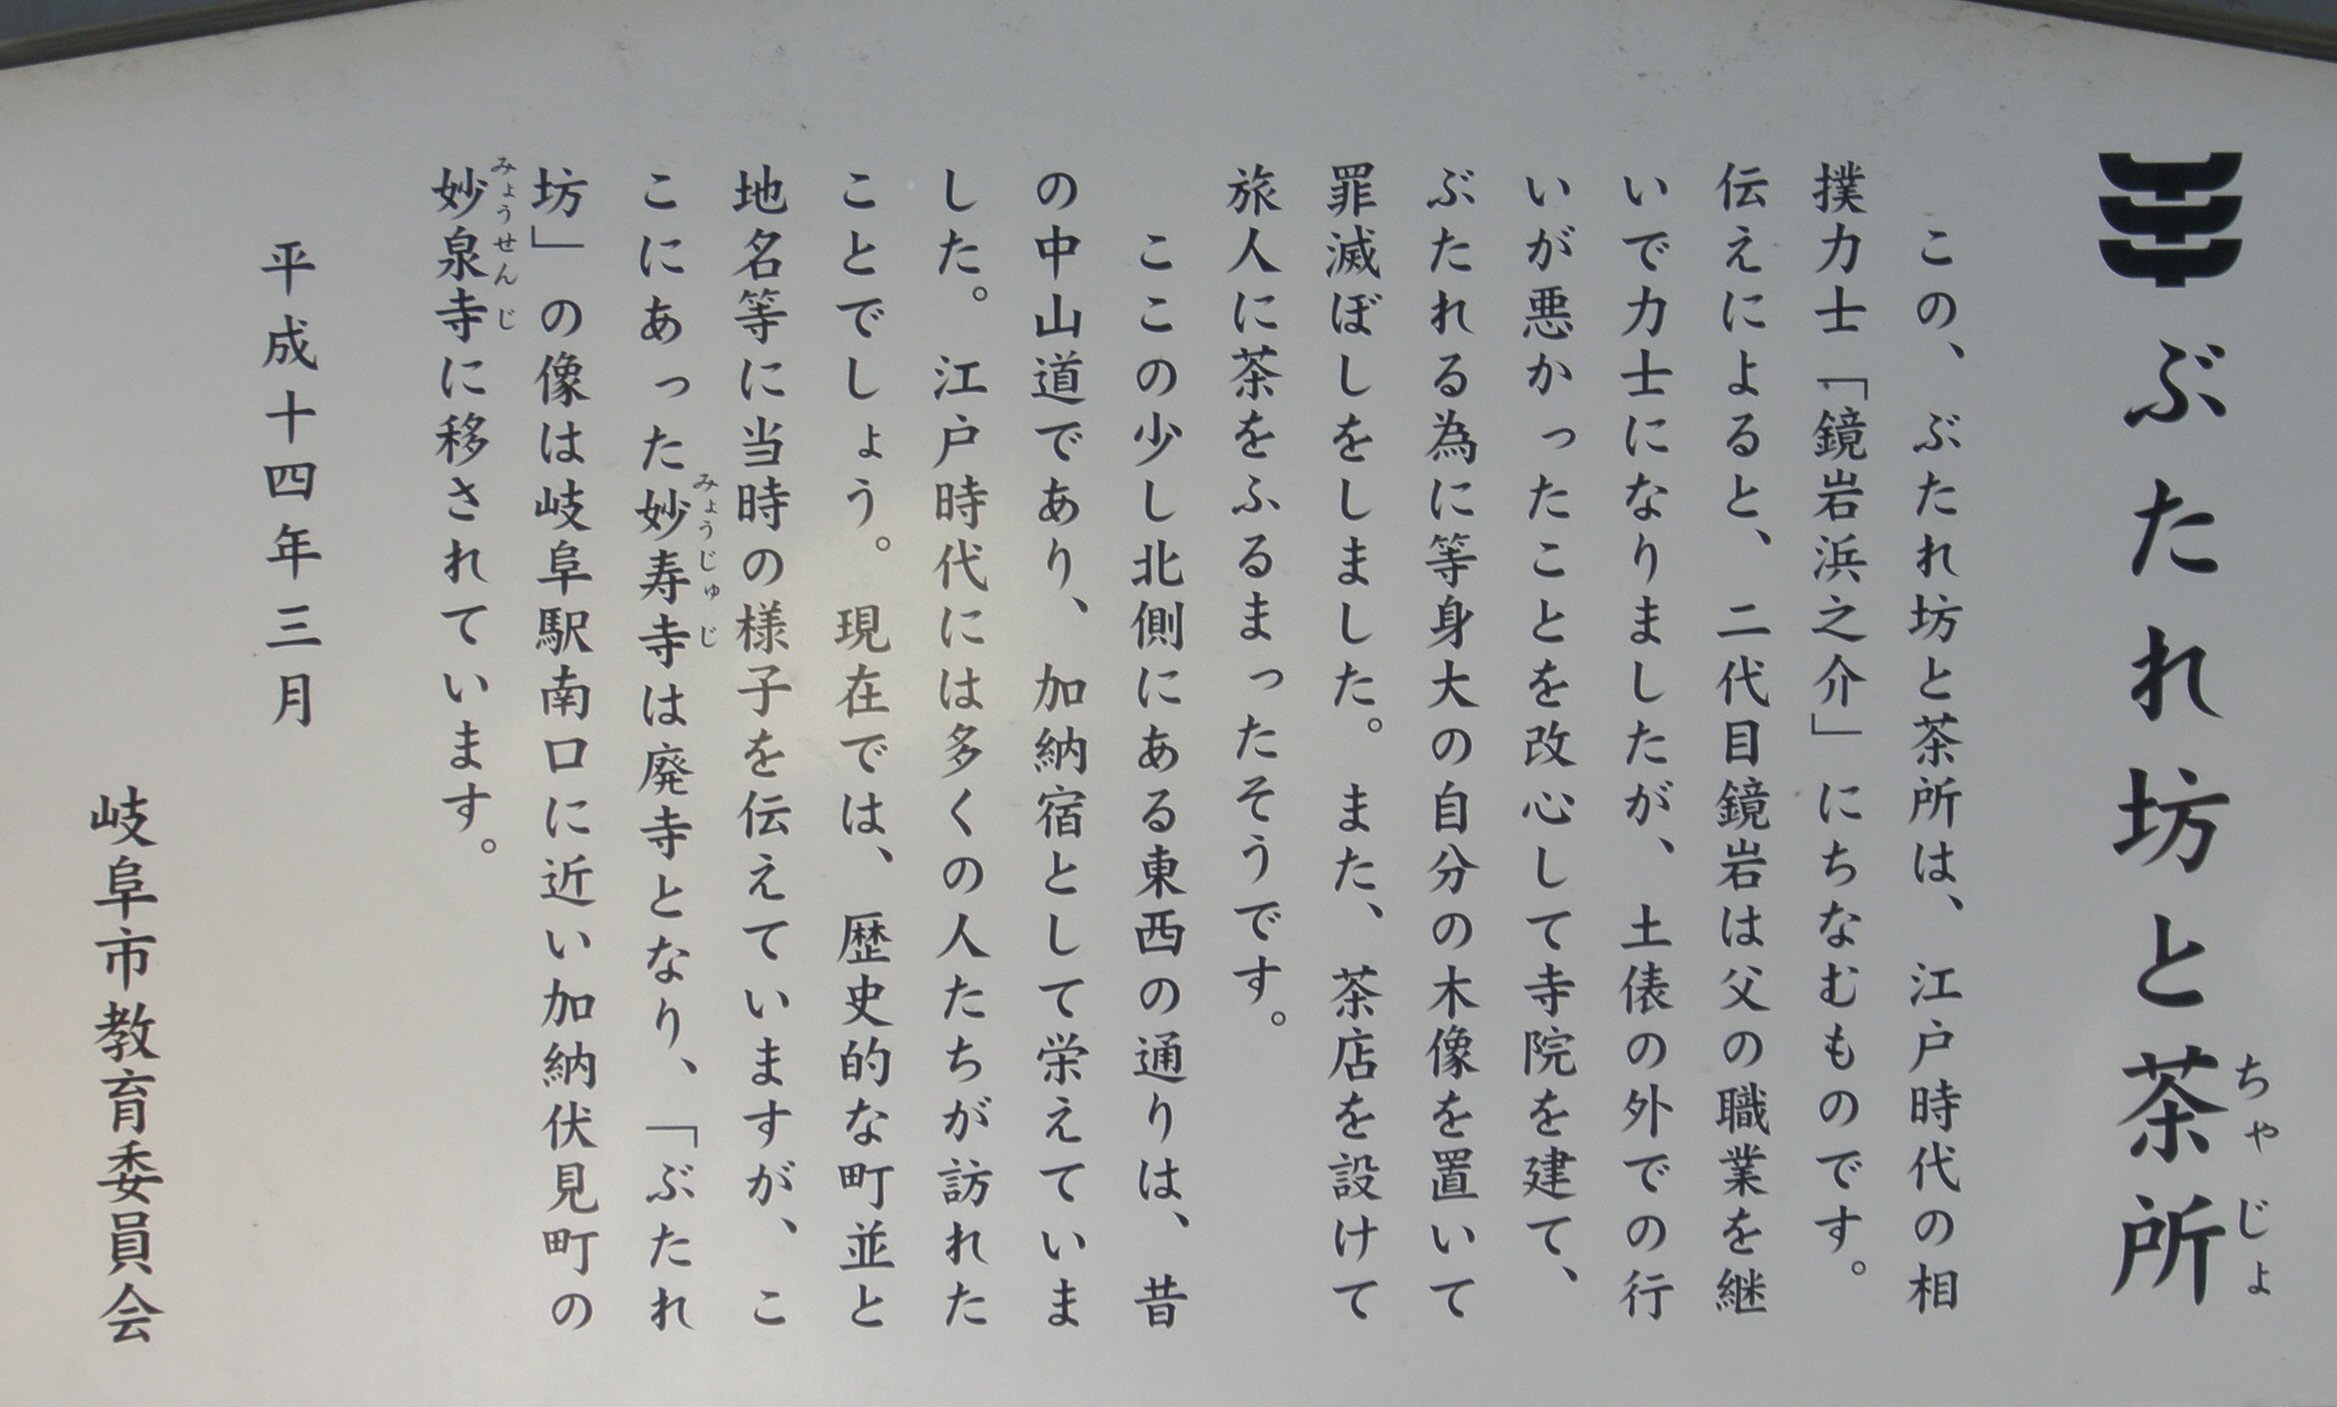 ぶたれ坊と茶所
ちゃじょ
この、ぶたれ坊と茶所は、江戸時代の相
撲力士「鏡岩浜之介」にちなむものです。
伝えによると、二代目鏡岩は父の職業を継
いで力士になりましたが、土俵の外での行
いが悪かったことを改心して寺院を建て、
ぶたれる為に等身大の自分の木像を置いて
罪滅ぼしをしました。また、茶店を設けて
旅人に茶をふるまったそうです。
ここの少し北側にある東西の通りは、昔
の中山道であり、加納宿として栄えていま
した。江戸時代には多くの人たちが訪れた
ことでしょう。現在では、歴史的な町並と
地名等に当時の様子を伝えていますが、こ
こにあった妙寿寺は廃寺となり、「ぶたれ
みょうじゅじ
坊」の像は岐阜駅南口に近い加納伏見町の
妙泉寺に移されています。
みょうせんじ
平成十四年三月
岐阜市教育委員会